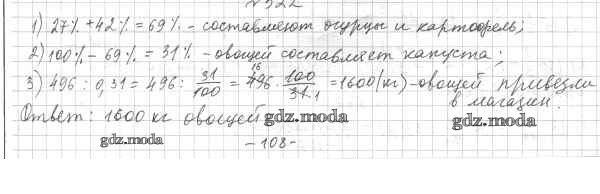 №522
1) 27% + 42% = 69% - составляют огурцы и картофель;
2) 100% - 69% = 31% - овощей составляет капуста;
3) 496 : 0,31 = 496 : 31/100 = 496 · 100/31 = 1600 (кг) - овощей привезли
в магазин.
Ответ: 1600 кг овощей
gdz.moda
gdz.moda
gdz.moda
- 108 -